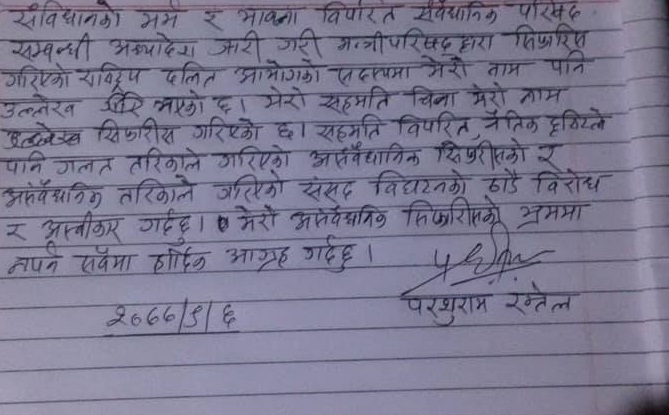 संविधानको मर्म र भावना विपरित संवैधानिक परिषद
सम्बन्धी अध्यादेश जारी गरी मन्त्रीपरिषद द्वारा सिफारिस
गरिएको राष्ट्रिय दलित आयोगको सदस्यमा मेरो नाम पनि
उल्लेख भएको छ। मेरो सहमति बिना मेरो नाम
सिफारीस गरिएको छ। सहमति विपरित, नैतिक दृष्टिले
पनि गलत तरिकाले गरिएको असंवैधानिक सिफारीसको र
असंवैधानिक तरिकाले गरिएको संसद विघटनको ठाडै विरोध
र अस्वीकार गर्दछु। मेरो असंवैधानिक सिफारिसको भ्रममा
नपर्न सबैमा हार्दिक आग्रह गर्दछु।
परशुराम रम्तेल
२०७७/९/६